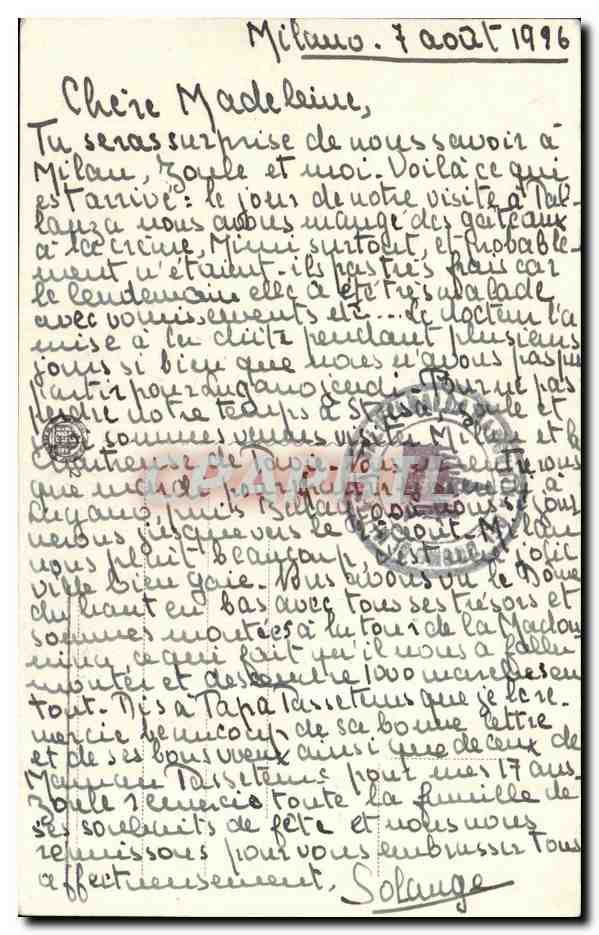 Milano. 7 août 1926
Chère Madeleine,
Tu seras surprise de nous savoir à
Milan, Zoule et moi. Voilà ce qui
est arrivé : le jour de notre visite à Pal-
lanza nous avons mangé des gâteaux
à la crème, Mimi surtout, et probable-
ment n'étaient-ils pas très frais car
le lendemain elle a été très malade
avec vomissements etc... Le docteur l'a
mise à la diète pendant plusieurs
jours si bien que nous n'avons pas pu
partir pour Lugano jeudi. Pour ne pas
perdre notre temps à Stresa, Zoule et
moi sommes venues visiter Milan et la
Chartreuse de Pavie. Nous rentrerons
que mardi pour partir à
Lugano puis où nous séjour
nerons jusque vers le août. Milan
nous plaît beaucoup, est jolie
ville bien gaie. Nous avons vu le Dôme
du haut en bas avec tous ses trésors et
sommes montées à la tour de la Madon
nina, ce qui fait qu'il nous a fallu
monter et descendre 1000 marches en
tout. Dis à Papa Passetemps que je le re-
mercie beaucoup de sa bonne lettre
et de ses bons vœux ainsi que de ceux de
Maman Passetemps pour mes 17 ans.
Zoule remercie toute la famille de
ses souhaits de fête et nous nous
réunissons pour vous embrasser tous
affectueusement,
Solange
CPAPHIL